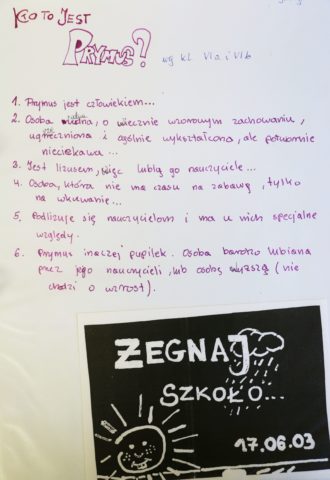 Kto to Jest
Prymus?
wg kl. VIa i VIb
1. Prymus jest człowiekiem...
2. Osoba nudna, o wiecznie wzorowym zachowaniu,
ugrzeczniona i ogólnie wykształcona, ale potwornie
nieciekawa...
3. Jest lizusem, więc lubią go nauczyciele...
4. Osoba, która nie ma czasu na zabawę, tylko
na wkuwanie...
5. Podlizuje się nauczycielom i ma u nich specjalne
względy.
6. Prymus inaczej pupilek. Osoba bardzo lubiana
przez jego nauczycieli, lub osobę wyższą (nie
chodzi o wzrost).
ŻEGNAJ
SZKOŁO...
17.06.03